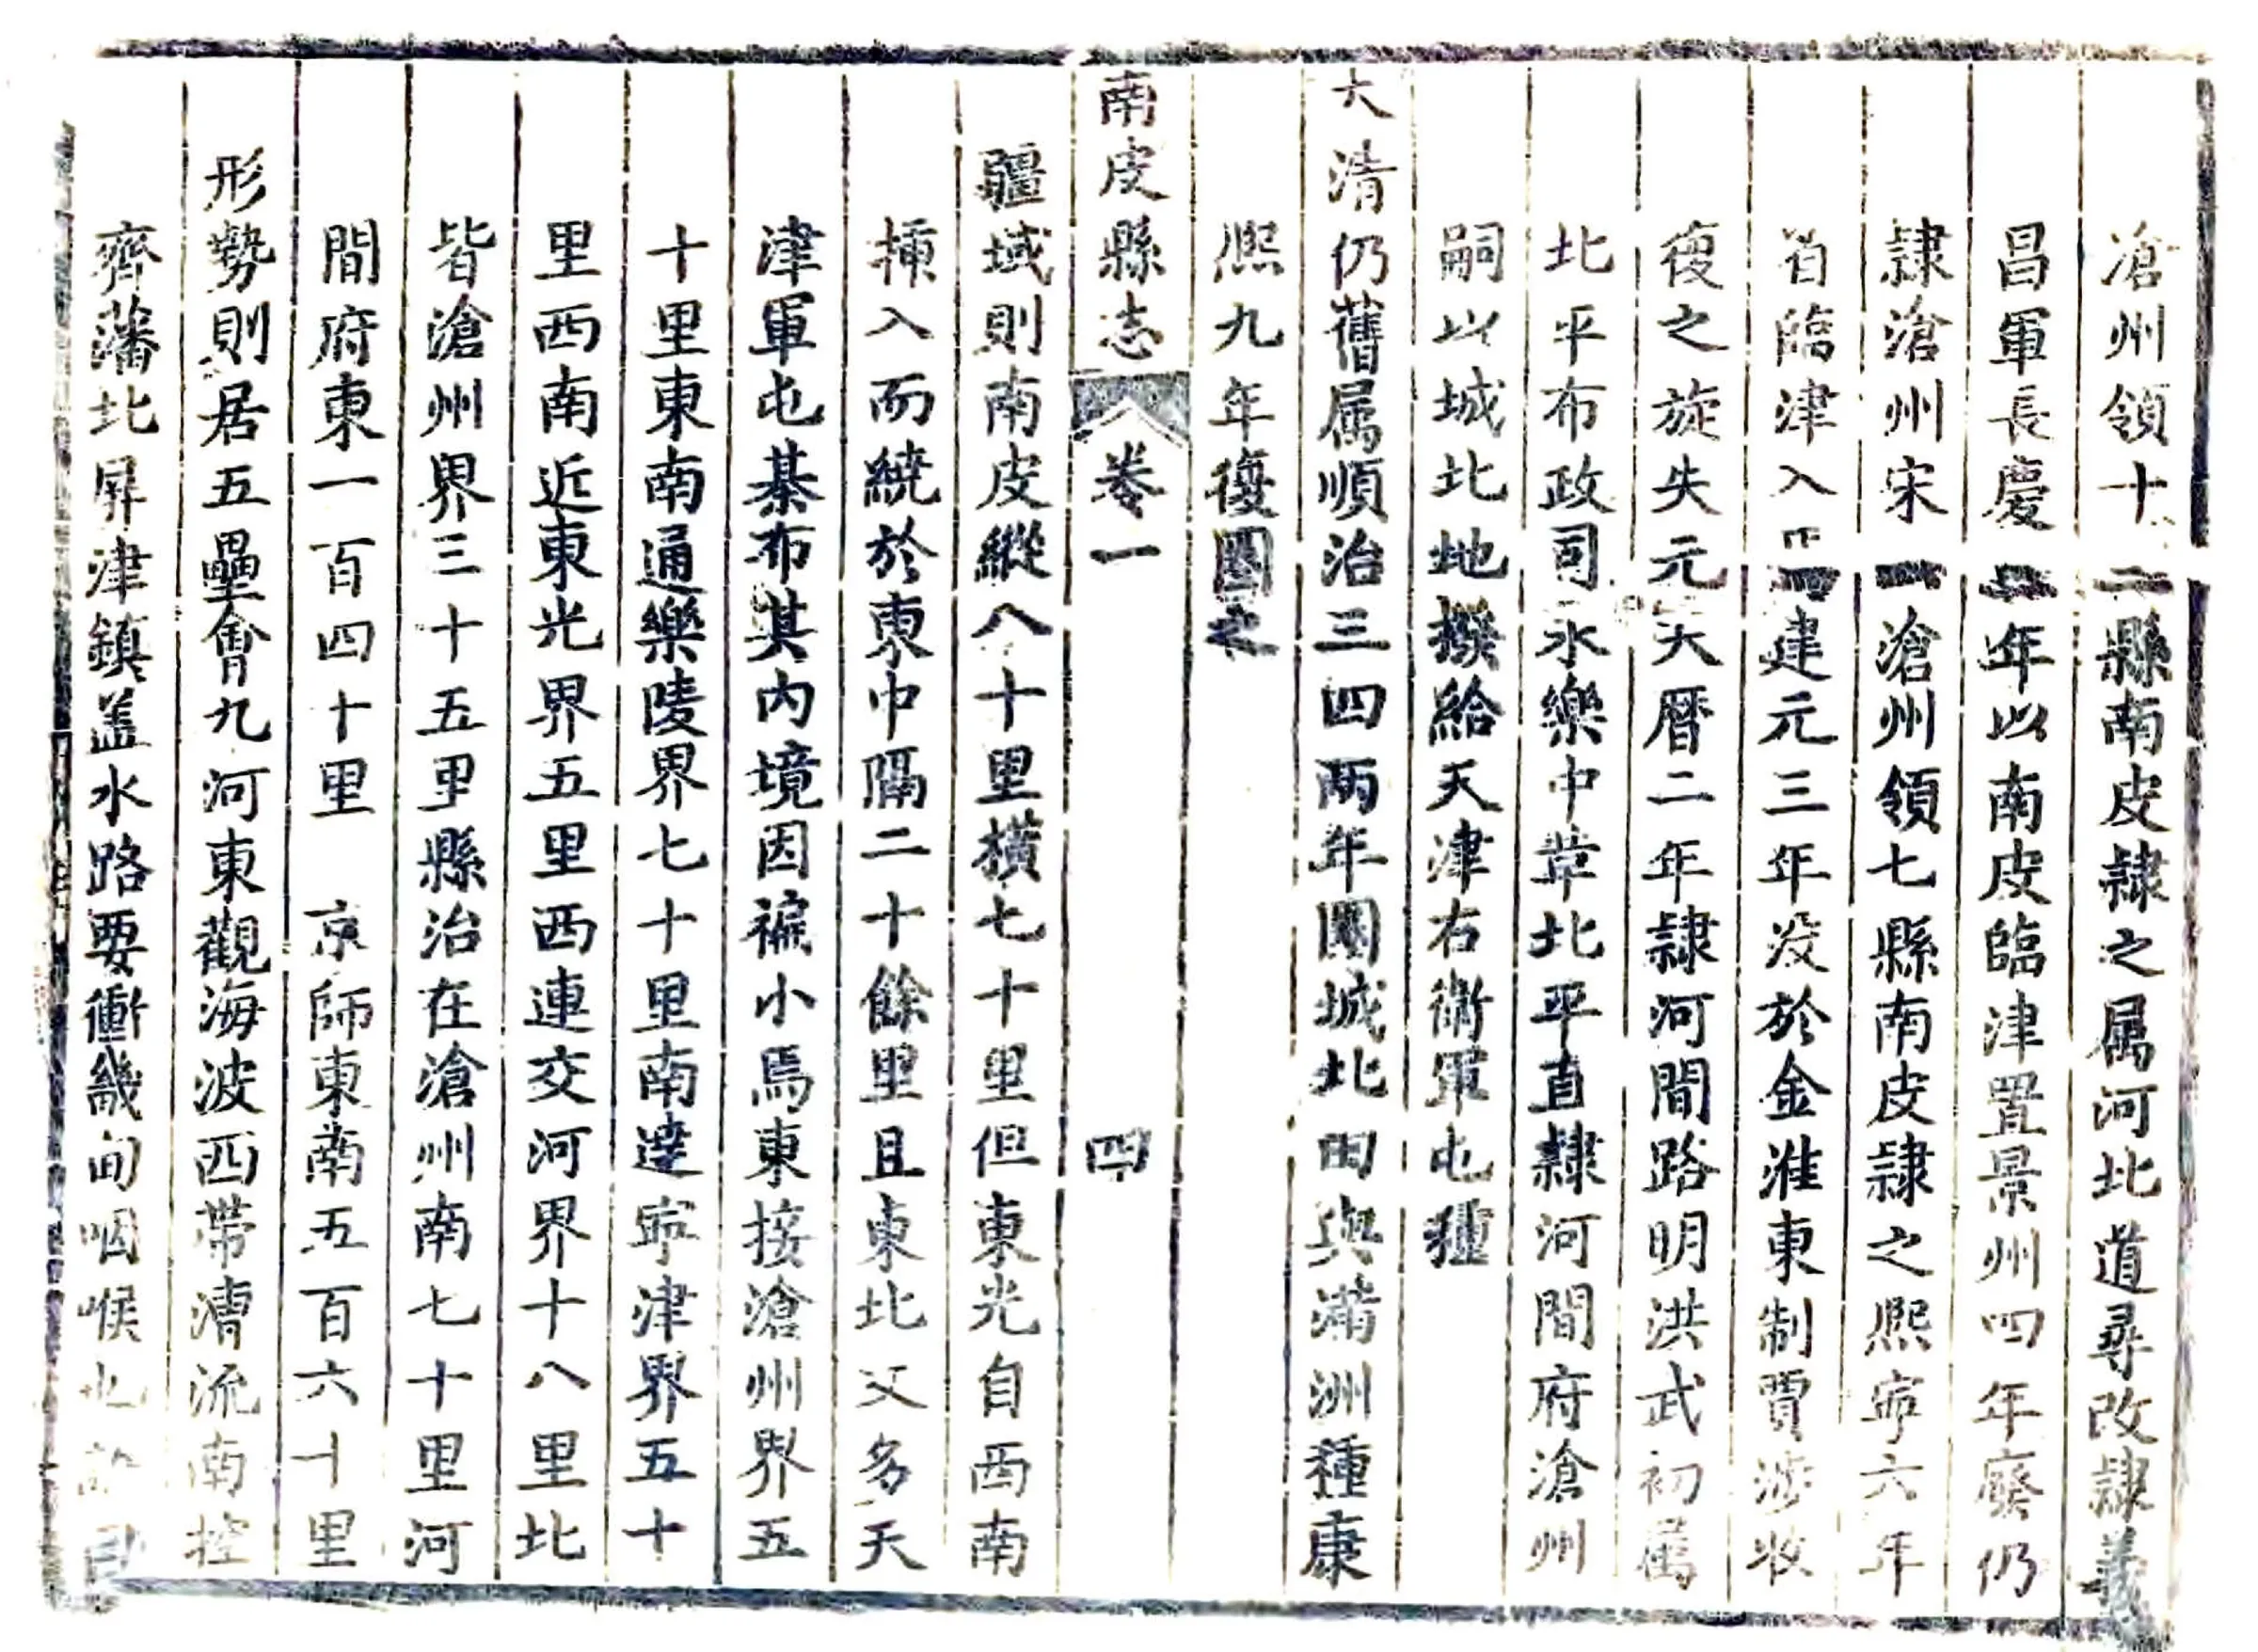 滄州領十二縣南皮隷之属河北道尋改隷義
昌軍長慶年以南皮臨津置景州四年廢仍
隷滄州宋滄州領七縣南皮隷之熙寜六年
省臨津入建元三年没於金淮東制賈涉收
復之旋失元大曆二年隷河間路明洪武初屬
北平布政司永樂中革北平直隷河間府滄州
嗣以城北地撥給天津右衛軍屯種
大清仍舊属順治三四兩年圈城北田與滿洲種康
熙九年復圈之
南皮縣志 卷一 四
疆域則南皮縱八十里橫七十里但東光自西南
揷入而繞於東中隔二十餘里且東北又多天
津軍屯棊布其内境因褊小焉東接滄州界五
十里東南通樂陵界七十里南達寜津界五十
里西南近東光界五里西連交河界十八里北
皆滄州界三十五里縣治在滄州南七十里河
間府東一百四十里 京師東南五百六十里
形勢則居五壘會九河東觀海波西帶漕流南控
齊藩北屏津鎮盖水路要衝畿甸咽喉也